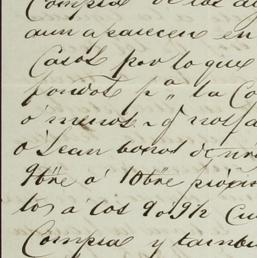 Compra de los
aun aparecen en
Casos por lo que
fondos pª la Co
ó menos
ó Sean bonos de
9bre ó 10bre próxi
tos á los 90 9½
Compra y tambi